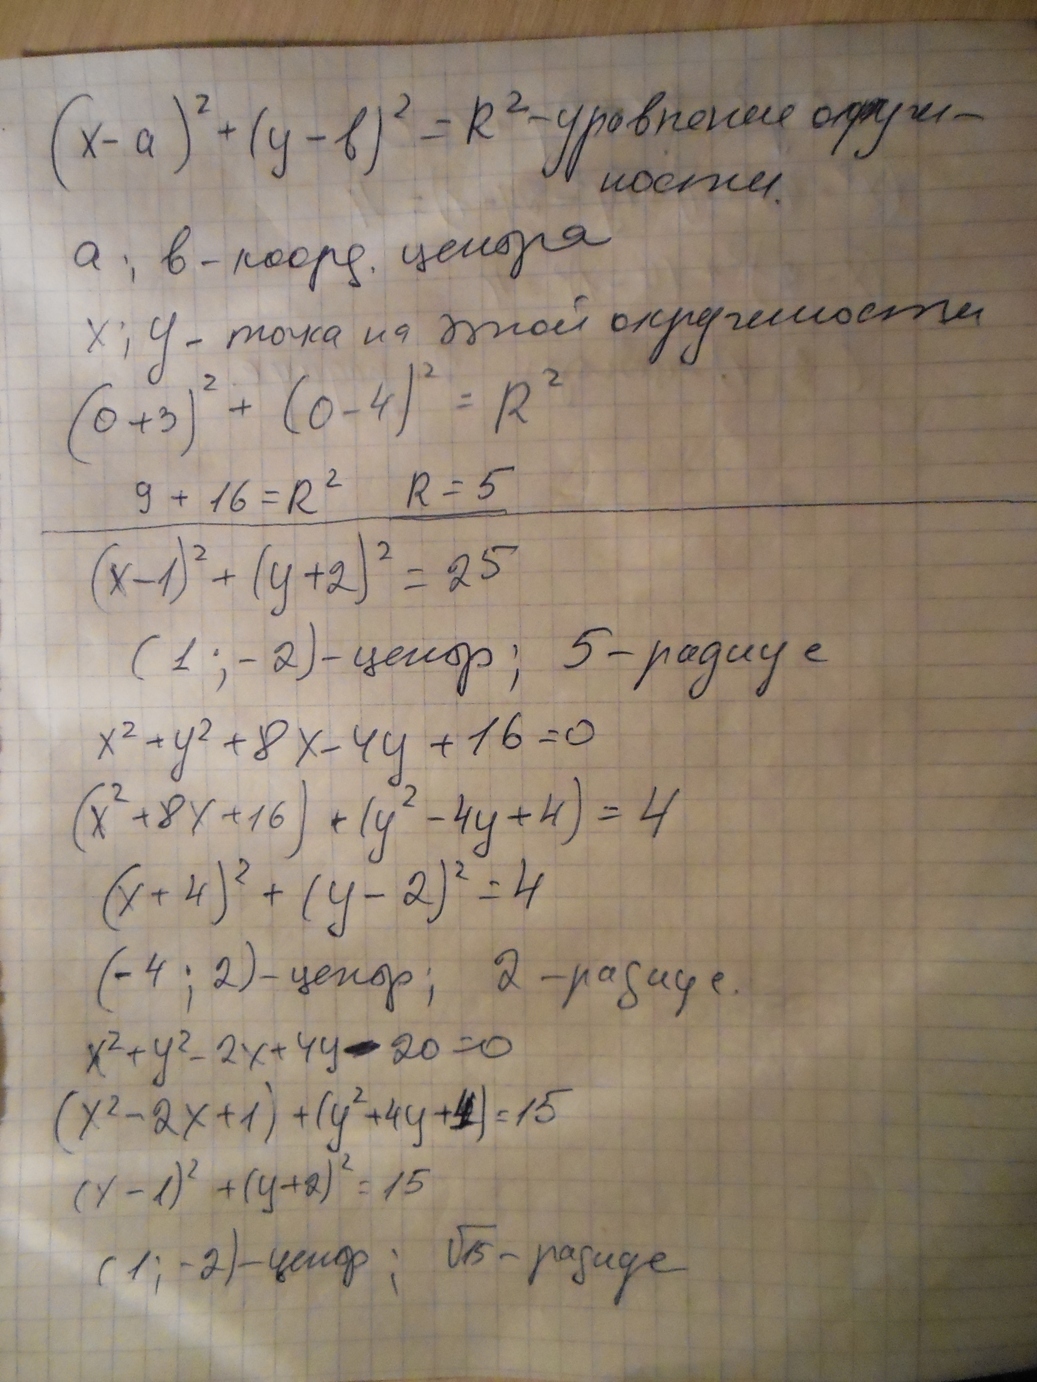 (x-a)² + (y-b)² = R² - уравнение окруж-
ности.
a ; b - коорд. центра
x ; y - точка на этой окружности
(0+3)² + (0-4)² = R²
9 + 16 = R² R = 5
(x-1)² + (y+2)² = 25
(1 ; -2) - центр ; 5 - радиус
x² + y² + 8x - 4y + 16 = 0
(x² + 8x + 16) + (y² - 4y + 4) = 4
(x + 4)² + (y - 2)² = 4
(-4 ; 2) - центр ; 2 - радиус.
x² + y² - 2x + 4y - 20 = 0
(x² - 2x + 1) + (y² + 4y + 4) = 15
(x - 1)² + (y+2)² = 15
(1 ; -2) - центр ; √15 - радиус